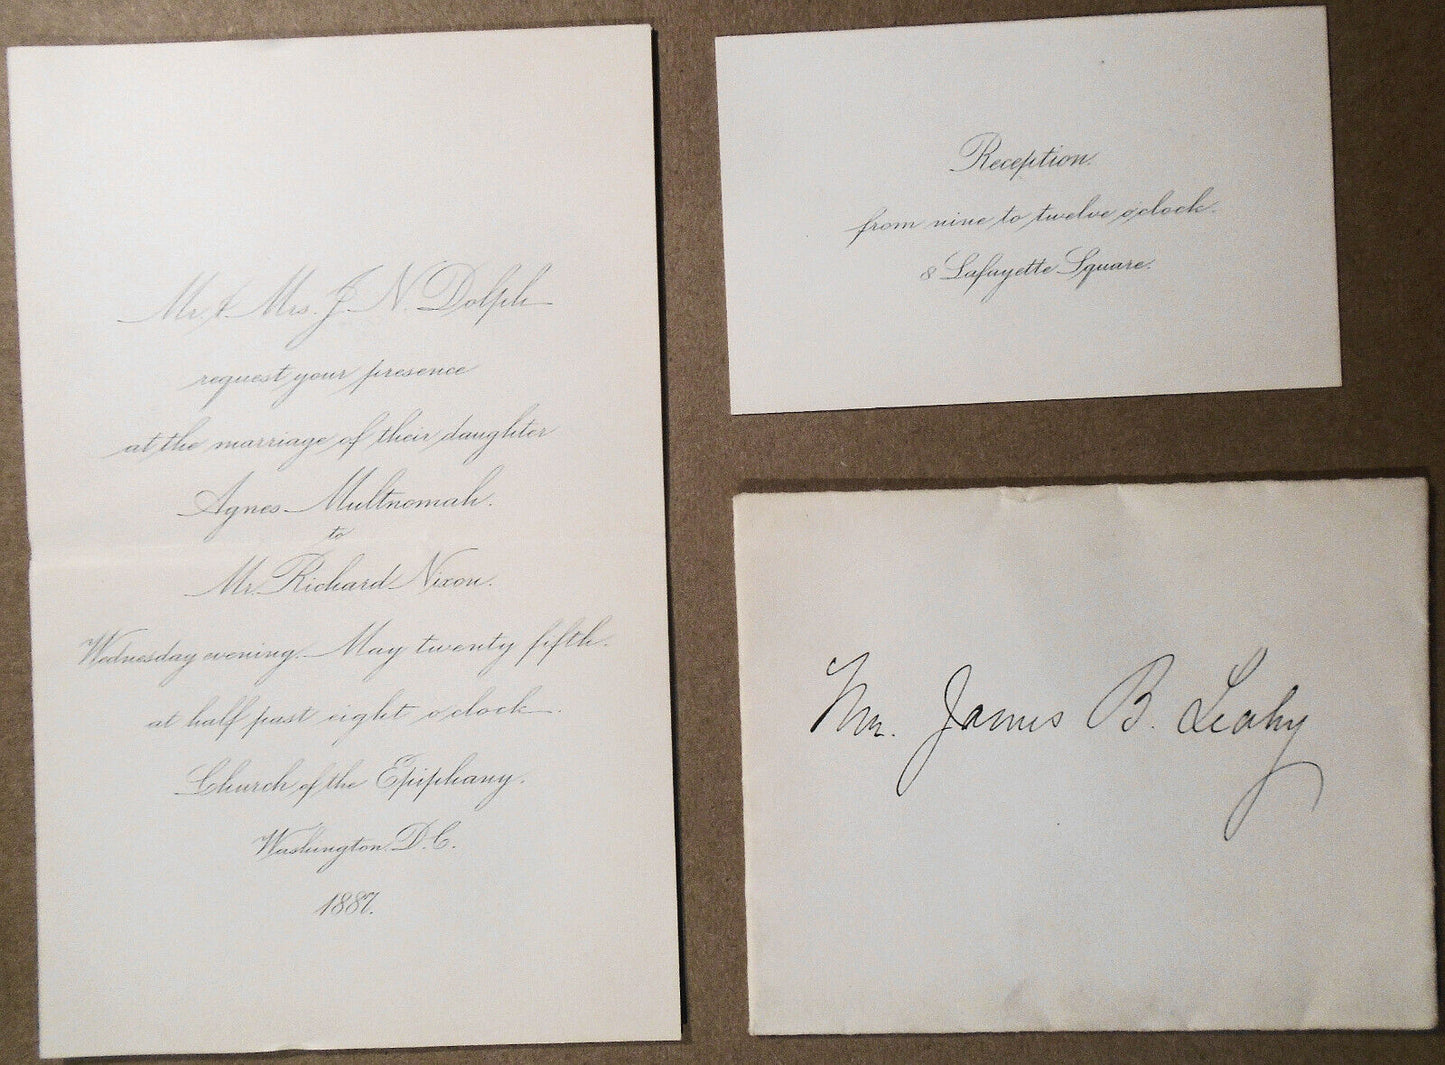 Mr. & Mrs. J. N. Dolph
request your presence
at the marriage of their daughter
Agnes Multnomah.
to
Mr. Richard Nixon.
Wednesday evening, May twenty fifth.
at half past eight o'clock.
Church of the Epiphany.
Washington. D.C.
1887.
Reception
from nine to twelve o'clock.
8 Lafayette Square.
Mr. James B. Leahy